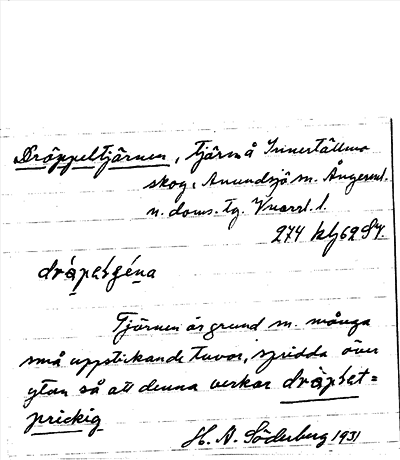 Dröppeltjärnen, tjärn å Innertällmo
skog, Anundsjö sn. Ångerml.
n. doms. tg. Vnorrl. l.
274 klg 62 Sv.
dråpəlȿéna
Tjärnen är grund m. många
små uppstickande tuvor, spridda över
ytan så att denna verkar dråplət=
prickig
H. A. Söderberg 1931